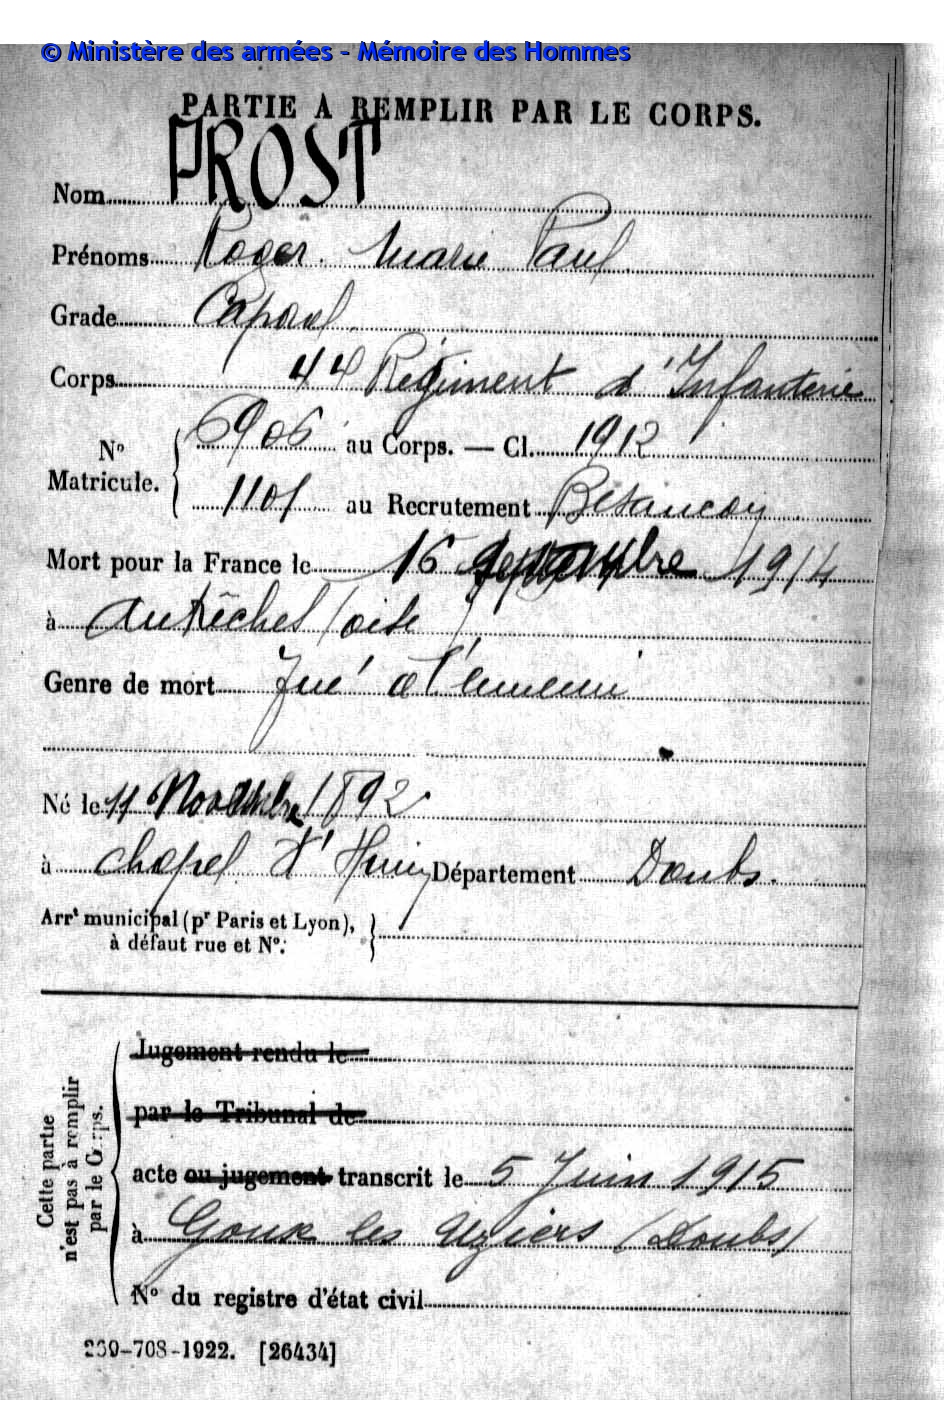 © Ministère des armées - Mémoire des Hommes
PARTIE A REMPLIR PAR LE CORPS.
Nom PROST
Prénoms Roger Marie Paul
Grade Caporal
Corps 44 Régiment d'Infanterie
N° Matricule. 6906 au Corps. — Cl. 1912
1101 au Recrutement Besançon
Mort pour la France le 16 septembre 1914
à Autrêches (oise)
Genre de mort Tué à l'ennemi
Né le 11 Novembre 1892
à Chapel d'Huin Département Doubs.
Arrt municipal (pr Paris et Lyon),
à défaut rue et N°.
Cette partie
n'est pas à remplir
par le Corps.
Jugement rendu le
par le Tribunal de
acte ou jugement transcrit le 5 Juin 1915
à Goux les Usiers (Doubs)
N° du registre d'état civil
239-708-1922. [26434]